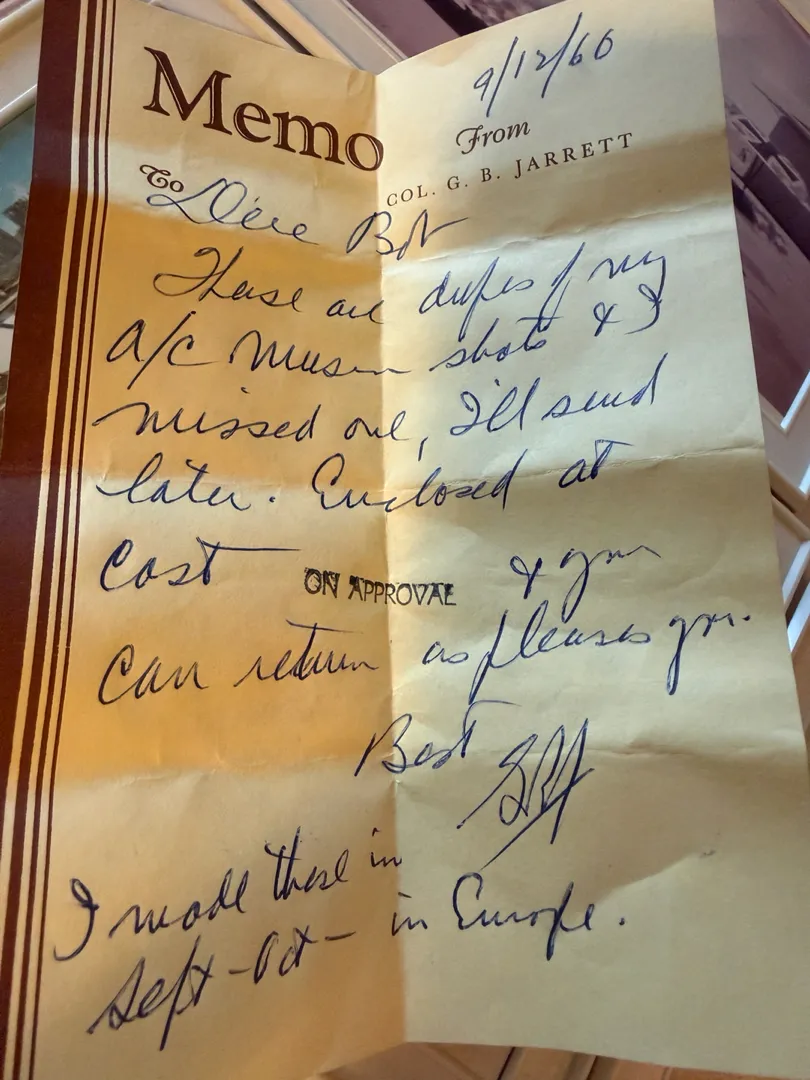 9/12/66
Memo
From
COL. G. B. JARRETT
To
Dere Bob
These are dupes of my
a/c Museum shots & I
missed one, I'll send
later. Enclosed at
Cost ON APPROVAL & you
Can return as pleases you.
Best GBJ
I made these in
Sept-Oct- in Europe.